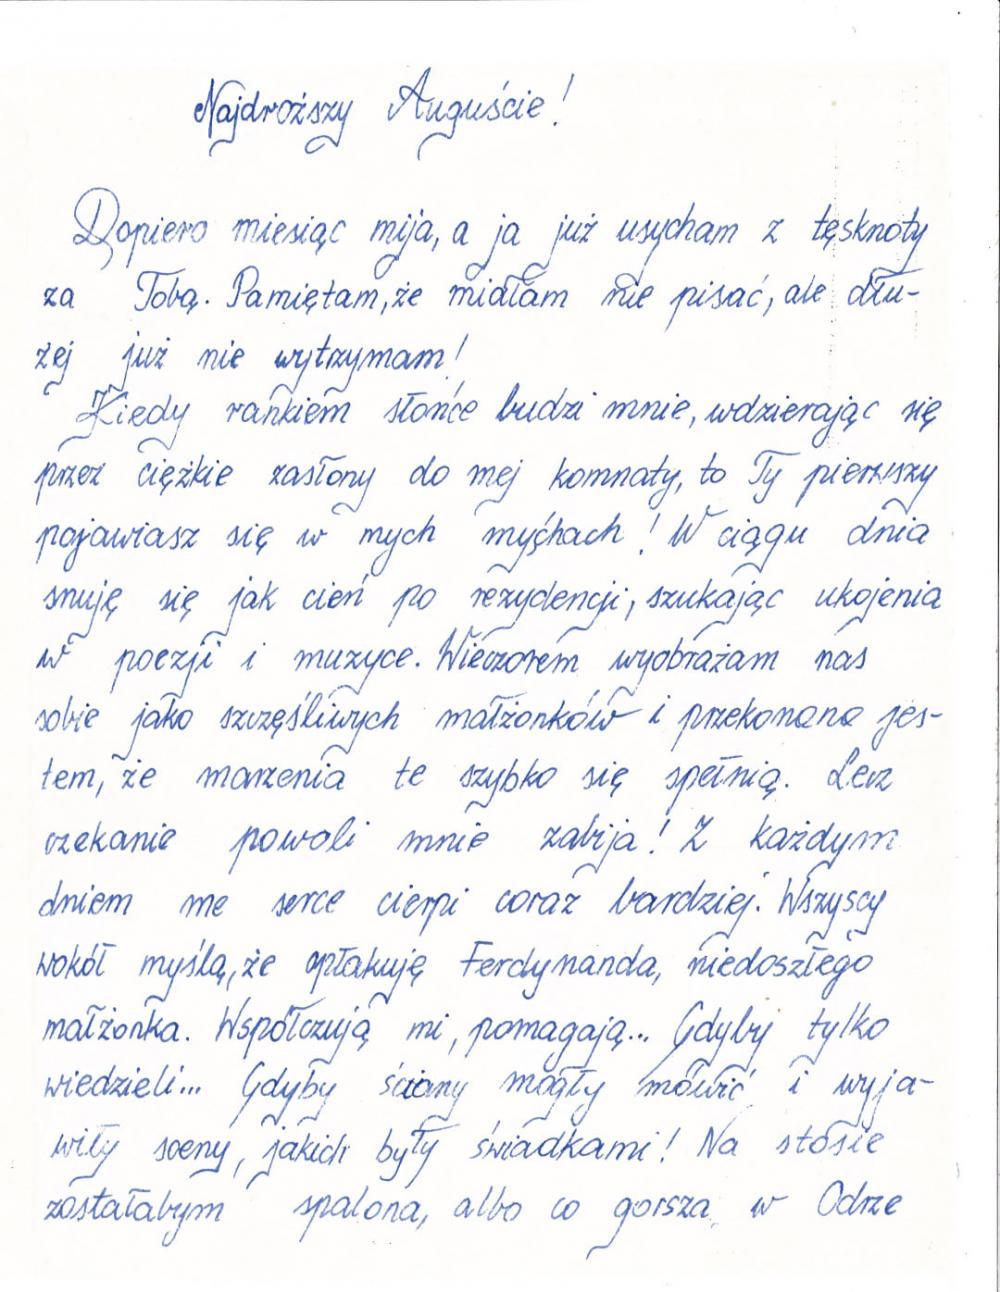 Najdroższy Auguście!
Dopiero miesiąc mija, a ja już usycham z tęsknoty
za Tobą. Pamiętam, że miałam nie pisać, ale dłu-
żej już nie wytrzymam!
Kiedy rankiem słońce budzi mnie, wdzierając się
przez ciężkie zasłony do mej komnaty, to Ty pierwszy
pojawiasz się w mych myślach! W ciągu dnia
snuję się jak cień po rezydencji, szukając ukojenia
w poezji i muzyce. Wieczorem wyobrażam nas
sobie jako szczęśliwych małżonków i przekonana jes-
tem, że marzenia te szybko się spełnią. Lecz
czekanie powoli mnie zabija! Z każdym
dniem me serce cierpi coraz bardziej. Wszyscy
wokół myślą, że opłakuję Ferdynanda, niedoszłego
małżonka. Współczują mi, pomagają... Gdyby tylko
wiedzieli... Gdyby ściany mogły mówić i wyja-
wiły sceny, jakich były świadkami! Na stosie
zostałabym spalona, albo co gorsza w Odrze